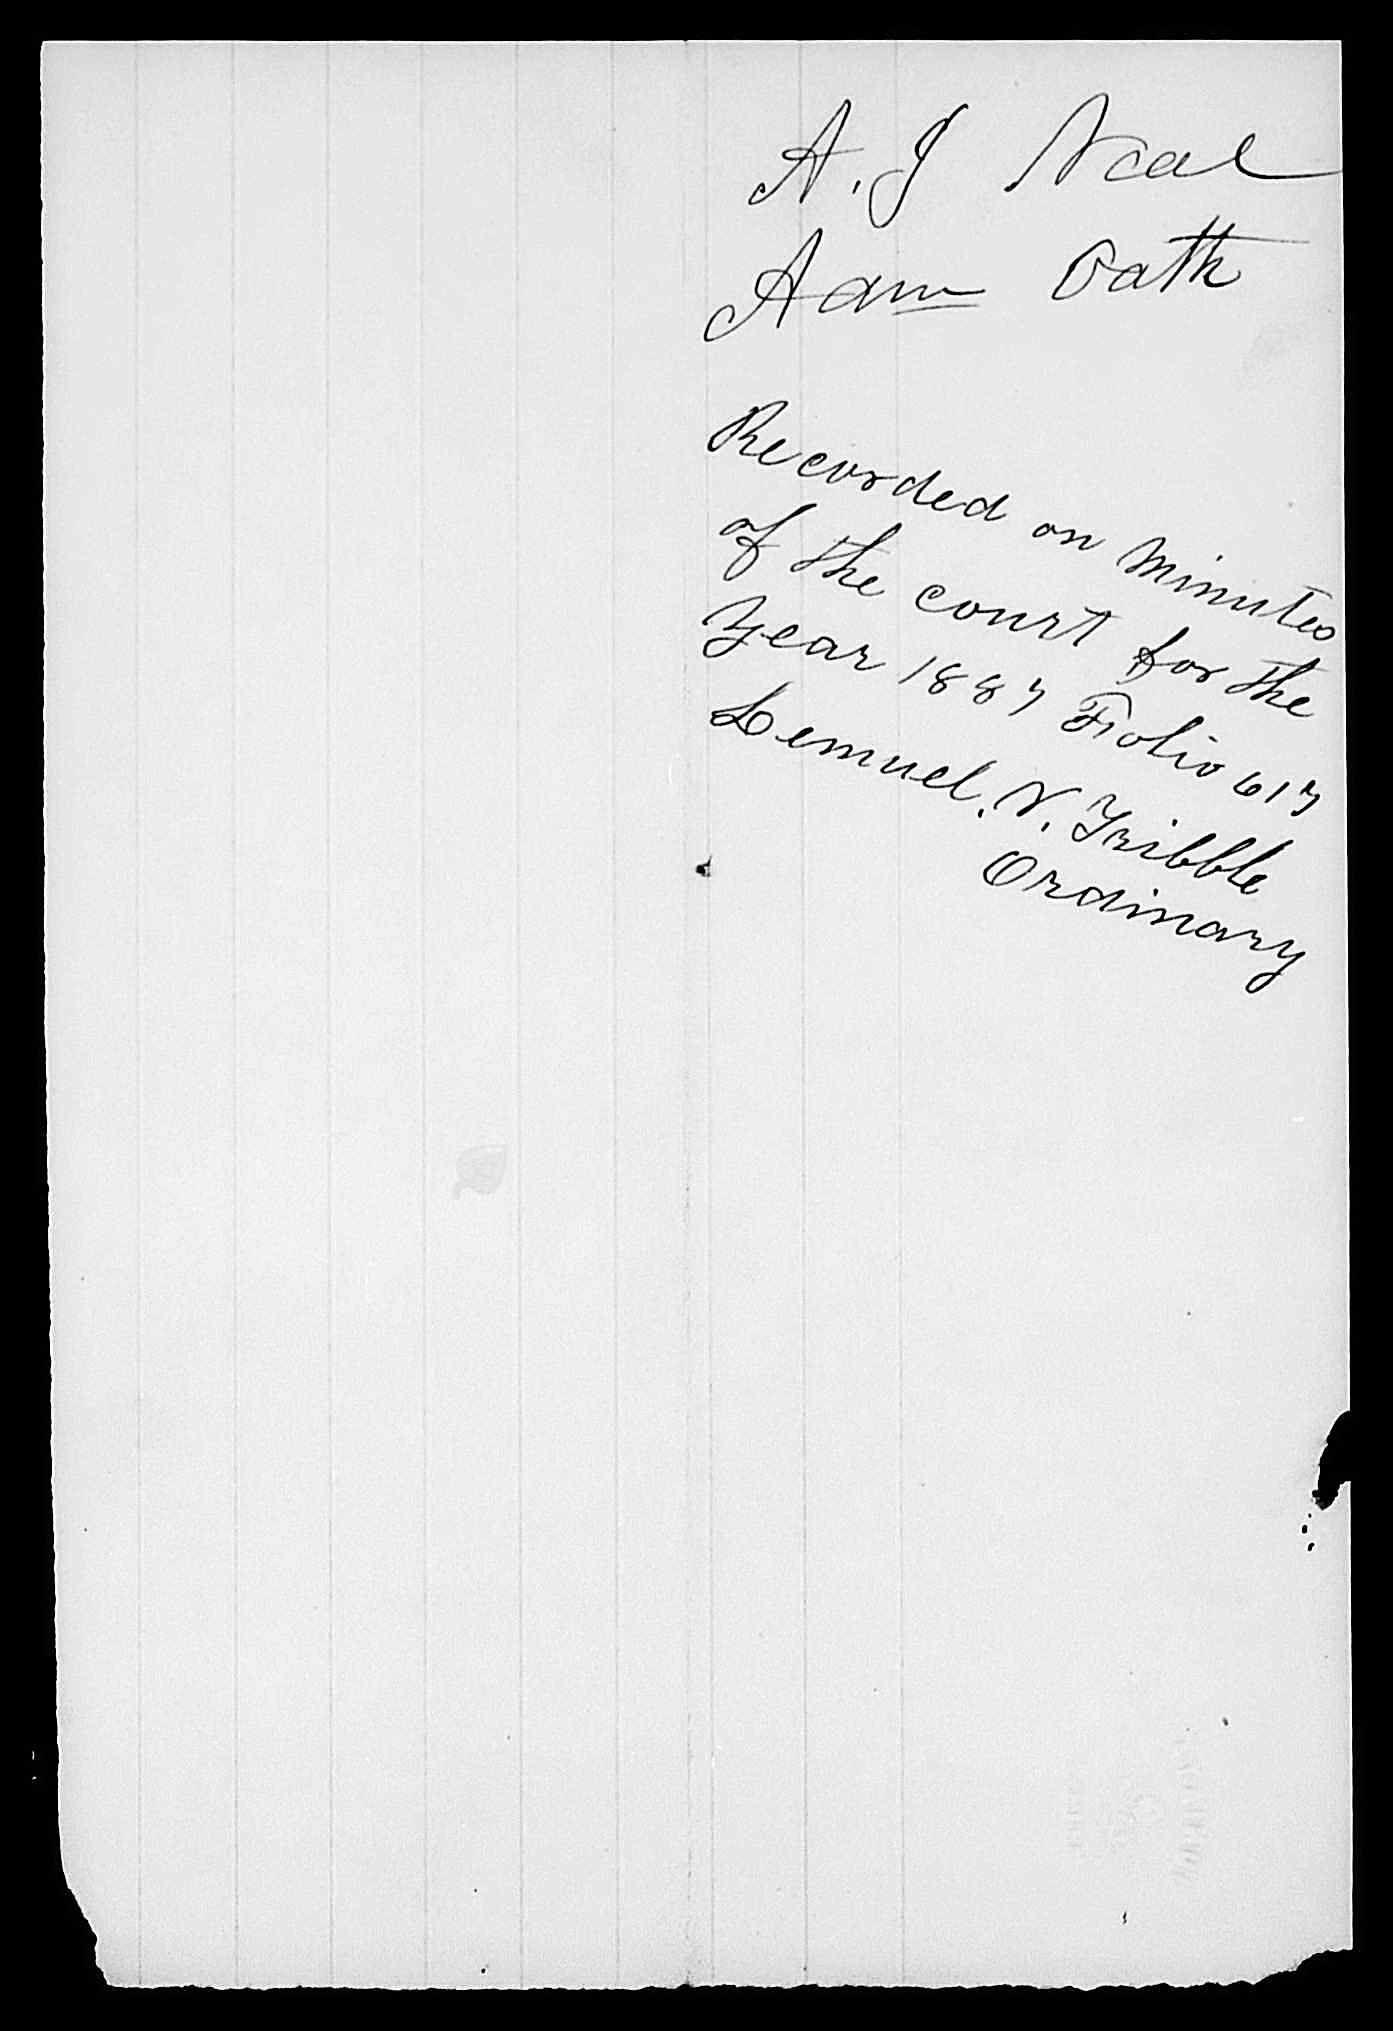 A. J Neal
Adm Oath
Recorded on Minutes
of the court for the
Year 1887 Folio 617
Lemuel. N. Tribble
Ordinary